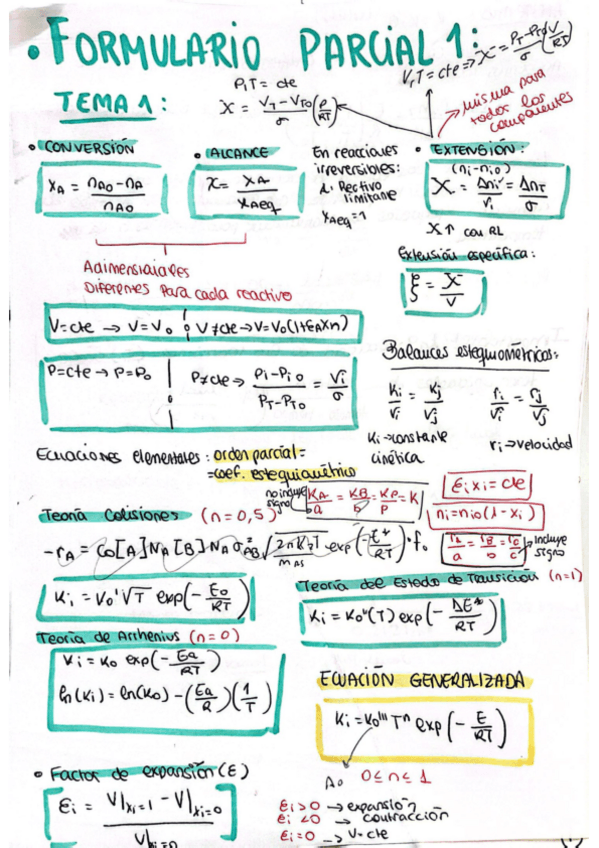 • FORMULARIO PARCIAL 1:
V,T = cte => X = (P_T - P_T0)/σ (V/RT)
P,T = cte
X = (V_T - V_T0)/σ (P/RT)
misma para todos los componentes
TEMA 1:
• CONVERSIÓN
x_A = (n_A0 - n_A)/n_A0
• ALCANCE
X = x_A/x_Aeq
En reacciones
irreversibles:
Rectivo
limitante
x_Aeq = 1
• EXTENSIÓN:
(n_i - n_i0)
X = Δn_i/ν_i = Δn_T/σ
X↑ con RL
Extensión específica:
ξ = X/V
Adimensionales
Diferentes para cada reactivo
V = cte → V = V_0 ¦ V ≠ cte → V = V_0(1+ε_A x_A)
P = cte → P = P_0 ¦ P ≠ cte → (P_i - P_i0)/(P_T - P_T0) = ν_i/σ
Balances estequiométricos:
k_i/ν_i = k_j/ν_j
r_i/ν_i = r_j/ν_j
k_i → constante
cinética
r_i → velocidad
Ecuaciones elementales: orden parcial =
= coef. estequiométrico
no incluye signo
k_A/a = k_B/b = k_P/p = k
ε_i x_i = cte
n_i = n_i0(1 - x_i)
incluye signo
Teoría Colisiones (n = 0,5)
Teoría del Estado de Transición (n=1)
k_i = k_0''(T) exp(- ΔE*/RT)
k_i = k_0' √T exp(- E_0/RT)
Teoría de Arrhenius (n=0)
k_i = k_0 exp(- Ea/RT)
ln(k_i) = ln(k_0) - (Ea/R)(1/T)
ECUACIÓN GENERALIZADA
k_i = k_0''' T^n exp(- E/RT)
A_0
0 ≤ n ≤ 1
• Factor de expansión (ε)
ε_i = (V|x_i=1 - V|x_i=0)/V|x_i=0
ε_i > 0 → expansión
ε_i < 0 → contracción
ε_i = 0 → V = cte